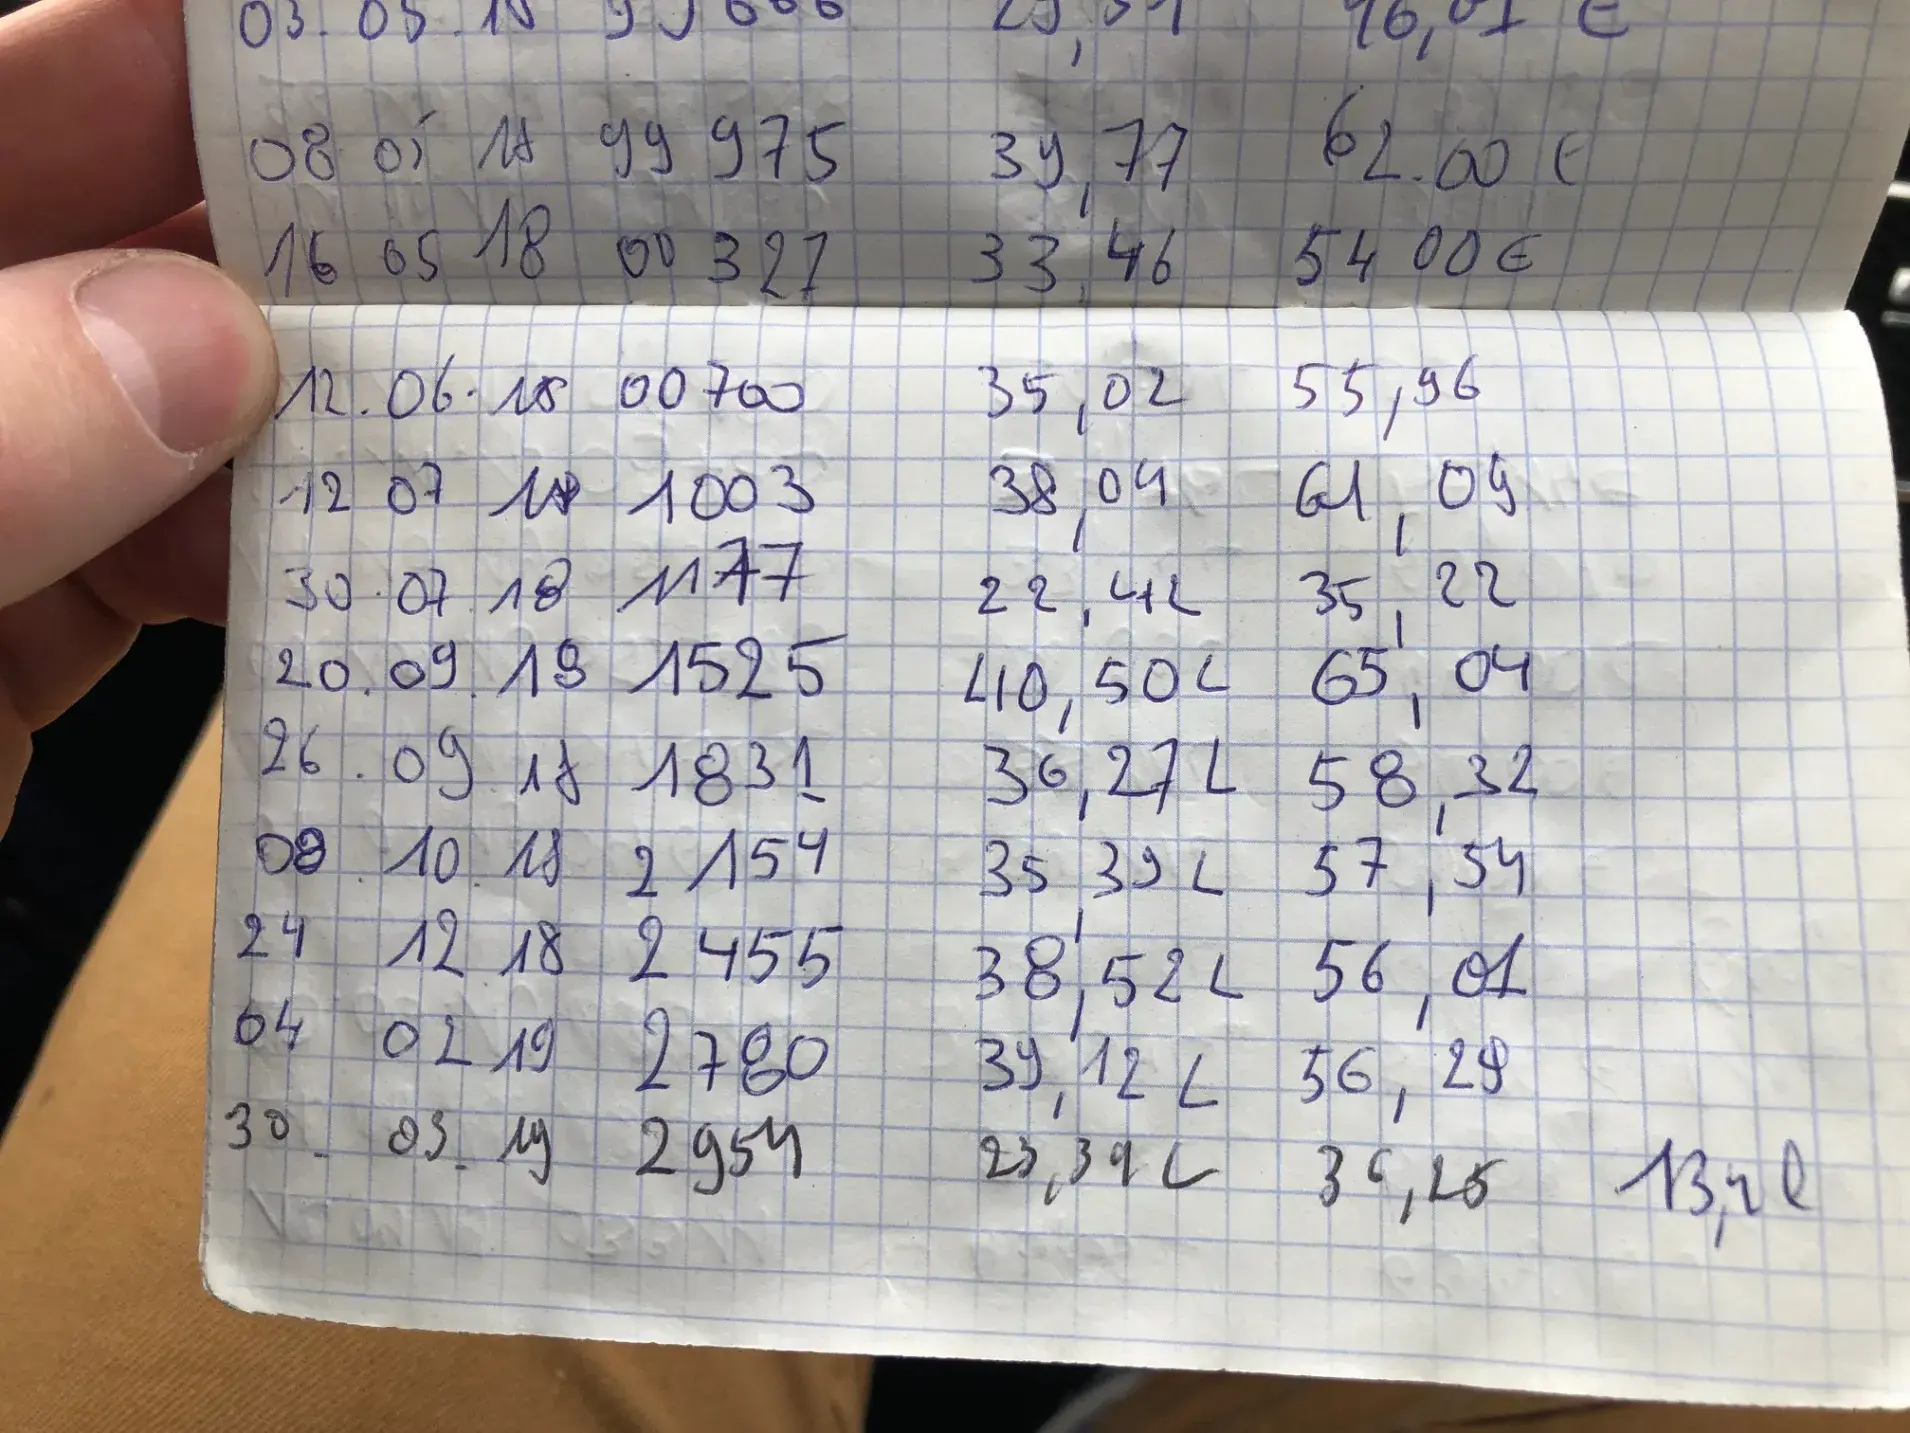 03. 05. 18 99 666 29,51 46,01 €
08 05 18 99 975 39,77 62.00 €
16 05 18 00 327 33,46 54 00 €
12. 06. 18 00700 35,02 55,96
12 07 18 1003 38,04 61,09
30. 07. 18 1177 22,42 35,22
20. 09. 18 1525 40,50 L 65,04
26. 09 18 1831 36,27 L 58,32
08. 10. 18 2 154 35,39 L 57,54
24 12 18 2 455 38,52 L 56,01
04 02 19 2780 39,12 L 56,29
30. 03. 19 2954 23,39 L 36,25 13,4 l